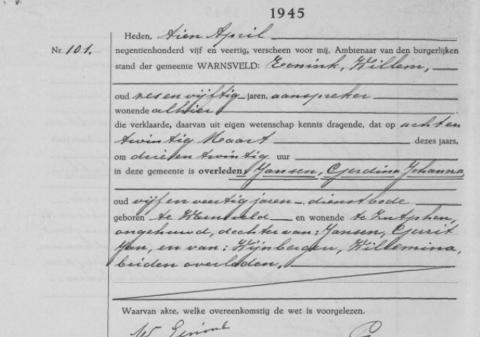 1945
Heden, tien April
Nr. 101.
negentienhonderd vijf en veertig, verscheen voor mij, Ambtenaar van den burgerlijken
stand der gemeente WARNSVELD: Eenink, Willem,
oud zes en vijftig jaren, aanspreker
wonende alhier
die verklaarde, daarvan uit eigen wetenschap kennis dragende, dat op acht en
twintig Maart dezes jaars,
om drie en twintig uur
in deze gemeente is overleden: Jansen, Gerdina Johanna
oud vijf en veertig jaren, dienstbode
geboren te en wonende te Zutphen,
ongehuwd, dochter van: Jansen, Gerrit
Jan, en van: Wijnbergen, Willemina,
beiden overleden,
Waarvan akte, welke overeenkomstig de wet is voorgelezen.
W Eenink